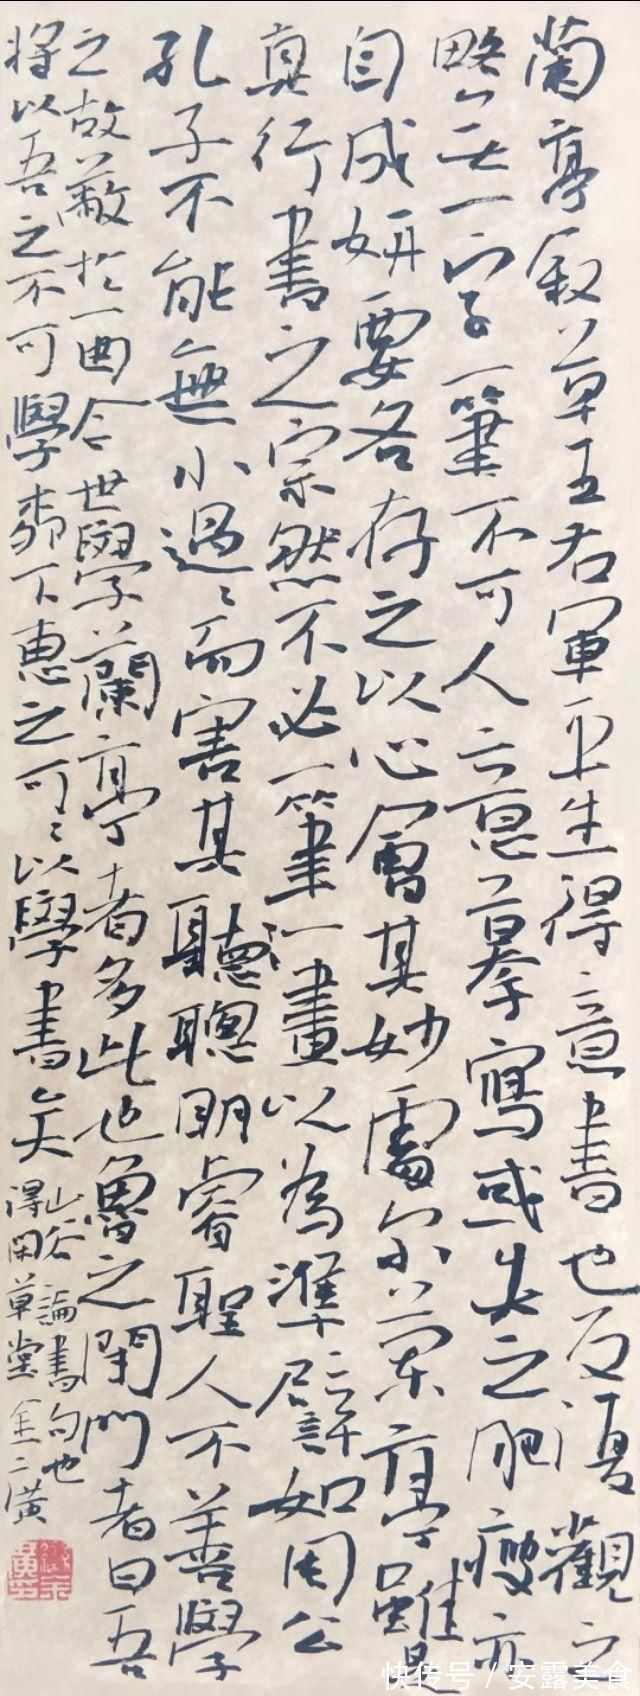 蘭亭叙草王右軍平生得意書也反復觀之
略無一字一筆不可人意摹寫或失之肥瘦亦
自成妍要各存之以心會其妙處尔蘭亭雖是
真行書之宗然不必一筆一畫以為準譬如周公
孔子不能無小過〻而害其聽聰明睿聖人不善學
之故蔽於一曲今世學蘭亭者多此也魯之閉門者曰吾
將以吾之不可學柳下惠之可〻以學書矣
山谷論書句也
得閑草堂金二潢
快传号 / 安露美食